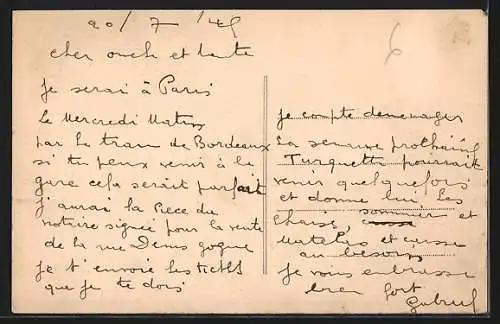 20/7/45
cher oncle et tante
je serai à Paris
Le Mercredi Matin
par le train de Bordeaux
si tu peux venir à la
gare cela serait parfait
j'aurai la Piece du
notaire signée pour la vente
de la rue Denis gogue
je t'envoie les
que je te dois
je compte demenager
La semaine prochaine
Turquetti pourrait
venir quelquefois
et donne lui les
chaises, sommier et
Matelas et
au besoin
je vous embrasse
bien fort
6